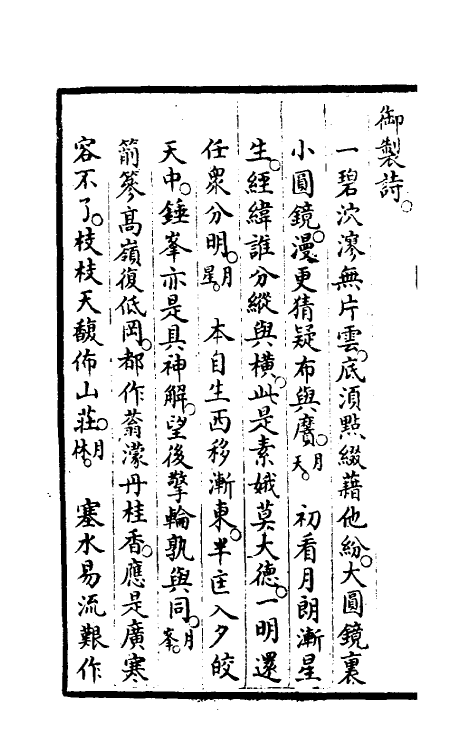 御製詩。
一碧泬漻無片雲。底須點綴藉他紛。大圓鏡裏
小圓鏡。漫更猜疑布與黂。月天。 初看月朗漸星
生。經緯誰分縱與橫。此是素娥莫大德。一明還
任眾分明。月星。 本自生西移漸東。半〇入夕皎
天中。錘峯亦是具神解。望後擎輪孰與同。月峯。
箾篸高嶺復低岡。都作蓊濛丹桂香。應是廣寒
容不了。枝枝天馥佈山莊。月林。 塞水易流艱作